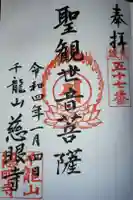 奉拝
五十七番
聖観世音菩薩
令和四年一月四日
千龍山
慈眼寺